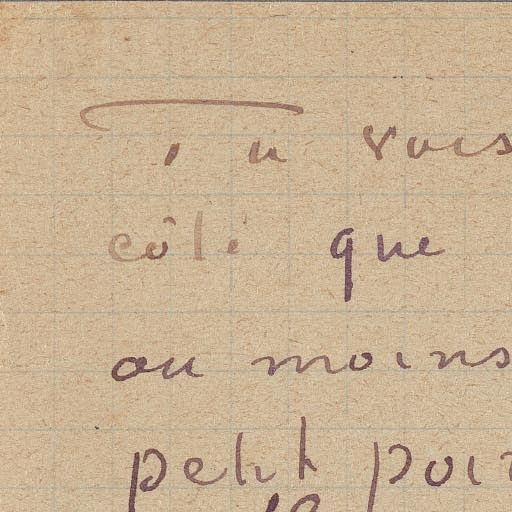 Tu vois
côté que
ou moins
petit poin